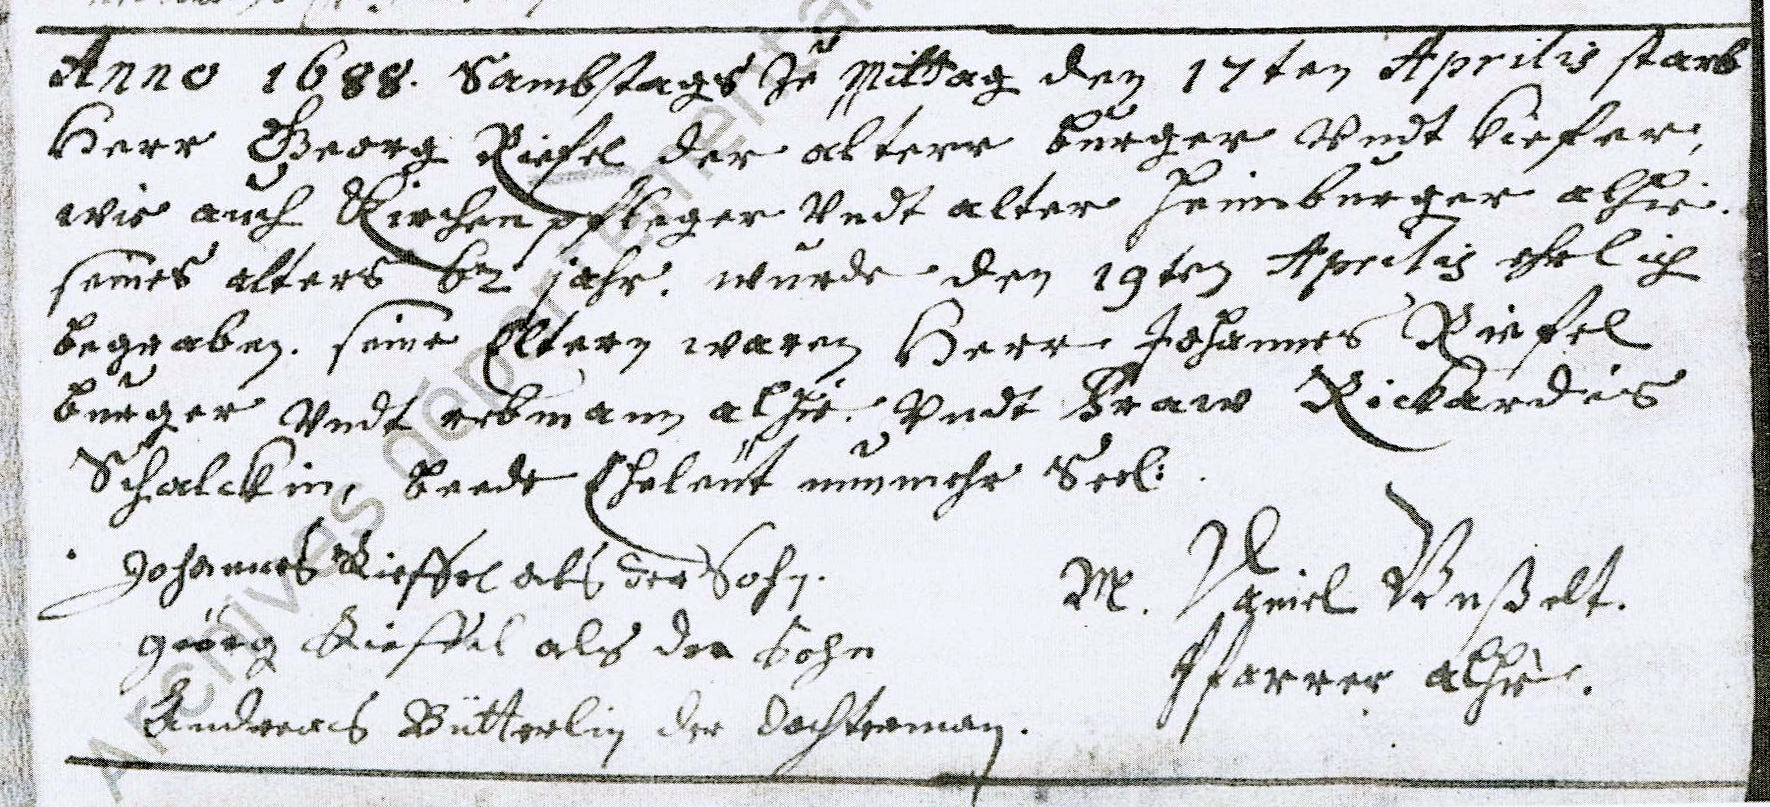 Anno 1688. Sambstags zu Mittag den 17ten Aprilis starb
Herr Georg Riefel der altere burger Vndt Kiefer,
wie auch Kirchenpfleger Vndt alter Heimburger alhie.
seines alters 62 jahr. wurde den 19ten Aprilis ehrlich
begraben. seine Eltern waren Herr Johannes Riefel
burger Vndt rebmann alhie. Vndt Fraw Rickardis
Schalckin, beede Eheleut nunmehr Seel:
Johannes Rieffel als der Sohn.
georg Rieffel als der Sohn
Andreas Bütterlin der dochterman.
M. Daniel
Pfarrer alhie.
Archives départementa